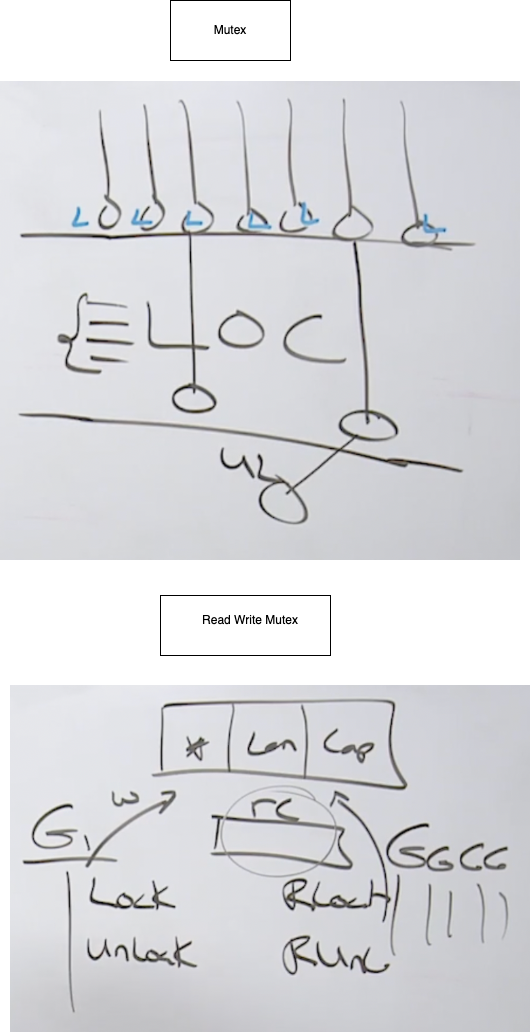 Mutex
L L L L L L
LOC
UL
Read Write Mutex
* Len Cap
w rc
G1 GGGG
Lock RLock
UnLock RUnL